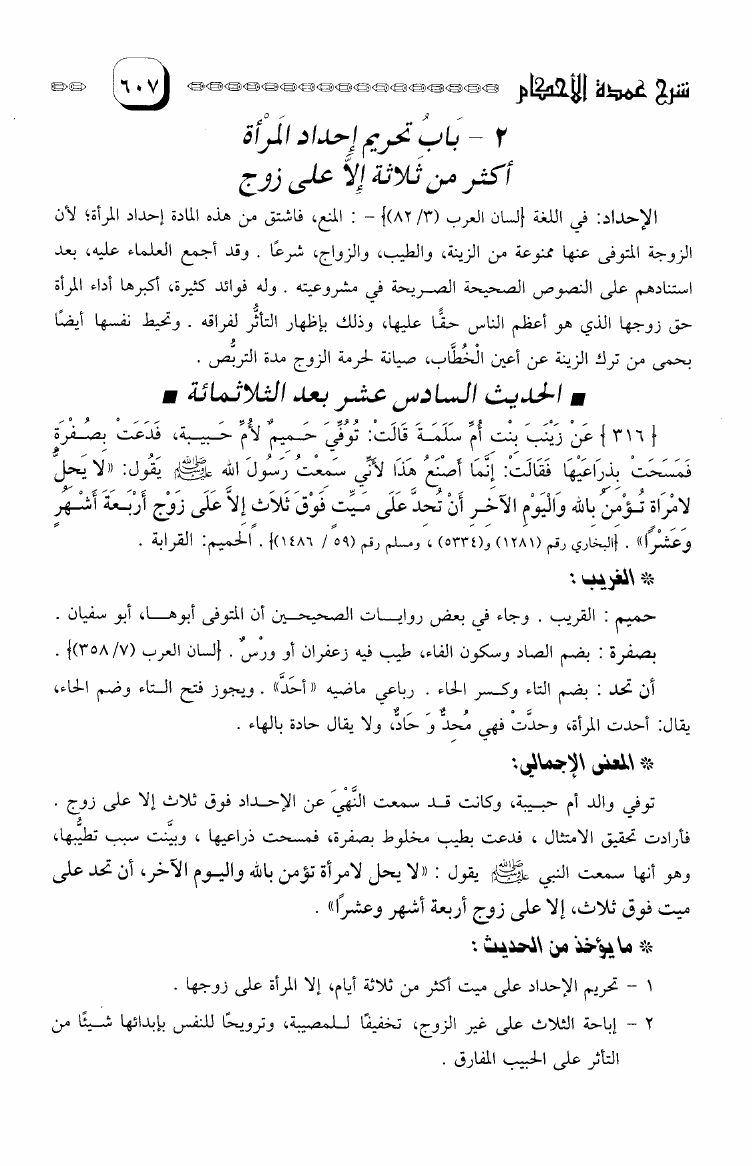 شرح عمدة الأحكام ٦٠٧
٢ - بَابُ تحريم إحداد المَرْأة
أكثر من ثَلاثة إلاَّ على زوج
الإحداد: في اللغة {لسان العرب (٨٢/٣)} - : المنع، فاشتق من هذه المادة إحداد المرأة؛ لأن
الزوجة المتوفى عنها ممنوعة من الزينة، والطيب، والزواج، شرعًا . وقد أجمع العلماء عليه، بعد
استنادهم على النصوص الصحيحة الصريحة في مشروعيته . وله فوائد كثيرة، أكبرها أداء المرأة
حق زوجها الذي هو أعظم الناس حقًّا عليها، وذلك بإظهار التأثُّر لفراقه . وتحيط نفسها أيضًا
بحمى من ترك الزينة عن أعين الْخُطَّاب، صيانة لحرمة الزوج مدة التربُّص .
■ الحديث السادس عشر بعد الثلاثمائة ■
{٣١٦} عَنْ زَيْنَبَ بِنْتِ أُمِّ سَلَمَةَ قَالَتْ: تُوُفِّيَ حَمِيمٌ لأُمِّ حَبِيبة، فَدَعَتْ بِصُفْرَةٍ
فَمَسَحَتْ بِذِرَاعَيْهَا فَقَالَتْ: إِنَّمَا أَصْنَعُ هَذَا لأَنِّي سَمِعْتُ رَسُولَ الله ﷺ يَقُولُ: «لا يَحِلُّ
لامْرَأة تُؤْمِنُ بِالله وَالْيَوْمِ الآخِرِ أَنْ تُحِدَّ عَلَى مَيِّت فَوْقَ ثَلاث إلاَّ عَلَى زَوْجٍ أَرْبَعَةَ أَشْهُرٍ
وَعَشْرًا» . {البخاري رقم (١٢٨١) و(٥٣٣٤) ، ومسلم رقم (٥٩ / ١٤٨٦)} . الحميم: القرابة .
* الغريب :
حميم : القريب . وجاء في بعض روايات الصحيحين أن المتوفى أبوها، أبو سفيان .
بصفرة : بضم الصاد وسكون الفاء، طيب فيه زعفران أو ورْسٌ . {لسان العرب (٣٥٨/٧)} .
أن تحد : بضم التاء وكسر الحاء . رباعي ماضيه «أَحَدَّ» . ويجوز فتح التاء وضم الحاء،
يقال: أحدت المرأة، وحدتْ فهي مُحِدٌّ وَ حَادٌّ، ولا يقال حادة بالهاء .
* المعنى الإجمالي:
توفي والد أم حبيبة، وكانت قد سمعت النَّهْيَ عن الإحداد فوق ثلاث إلا على زوج .
فأرادت تحقيق الامتثال ، فدعت بطيب مخلوط بصفرة، فمسحت ذراعيها ، وبيَّنت سبب تطيُّبها،
وهو أنها سمعت النبي ﷺ يقول : «لا يحل لامرأة تؤمن بالله واليوم الآخر، أن تحد على
ميت فوق ثلاث، إلا على زوج أربعة أشهر وعشرًا» .
* ما يؤخذ من الحديث :
١ - تحريم الإحداد على ميت أكثر من ثلاثة أيام، إلا المرأة على زوجها .
٢ - إباحة الثلاث على غير الزوج، تخفيفًا للمصيبة، وترويحًا للنفس بإبدائها شيئًا من
التأثر على الحبيب المفارق .